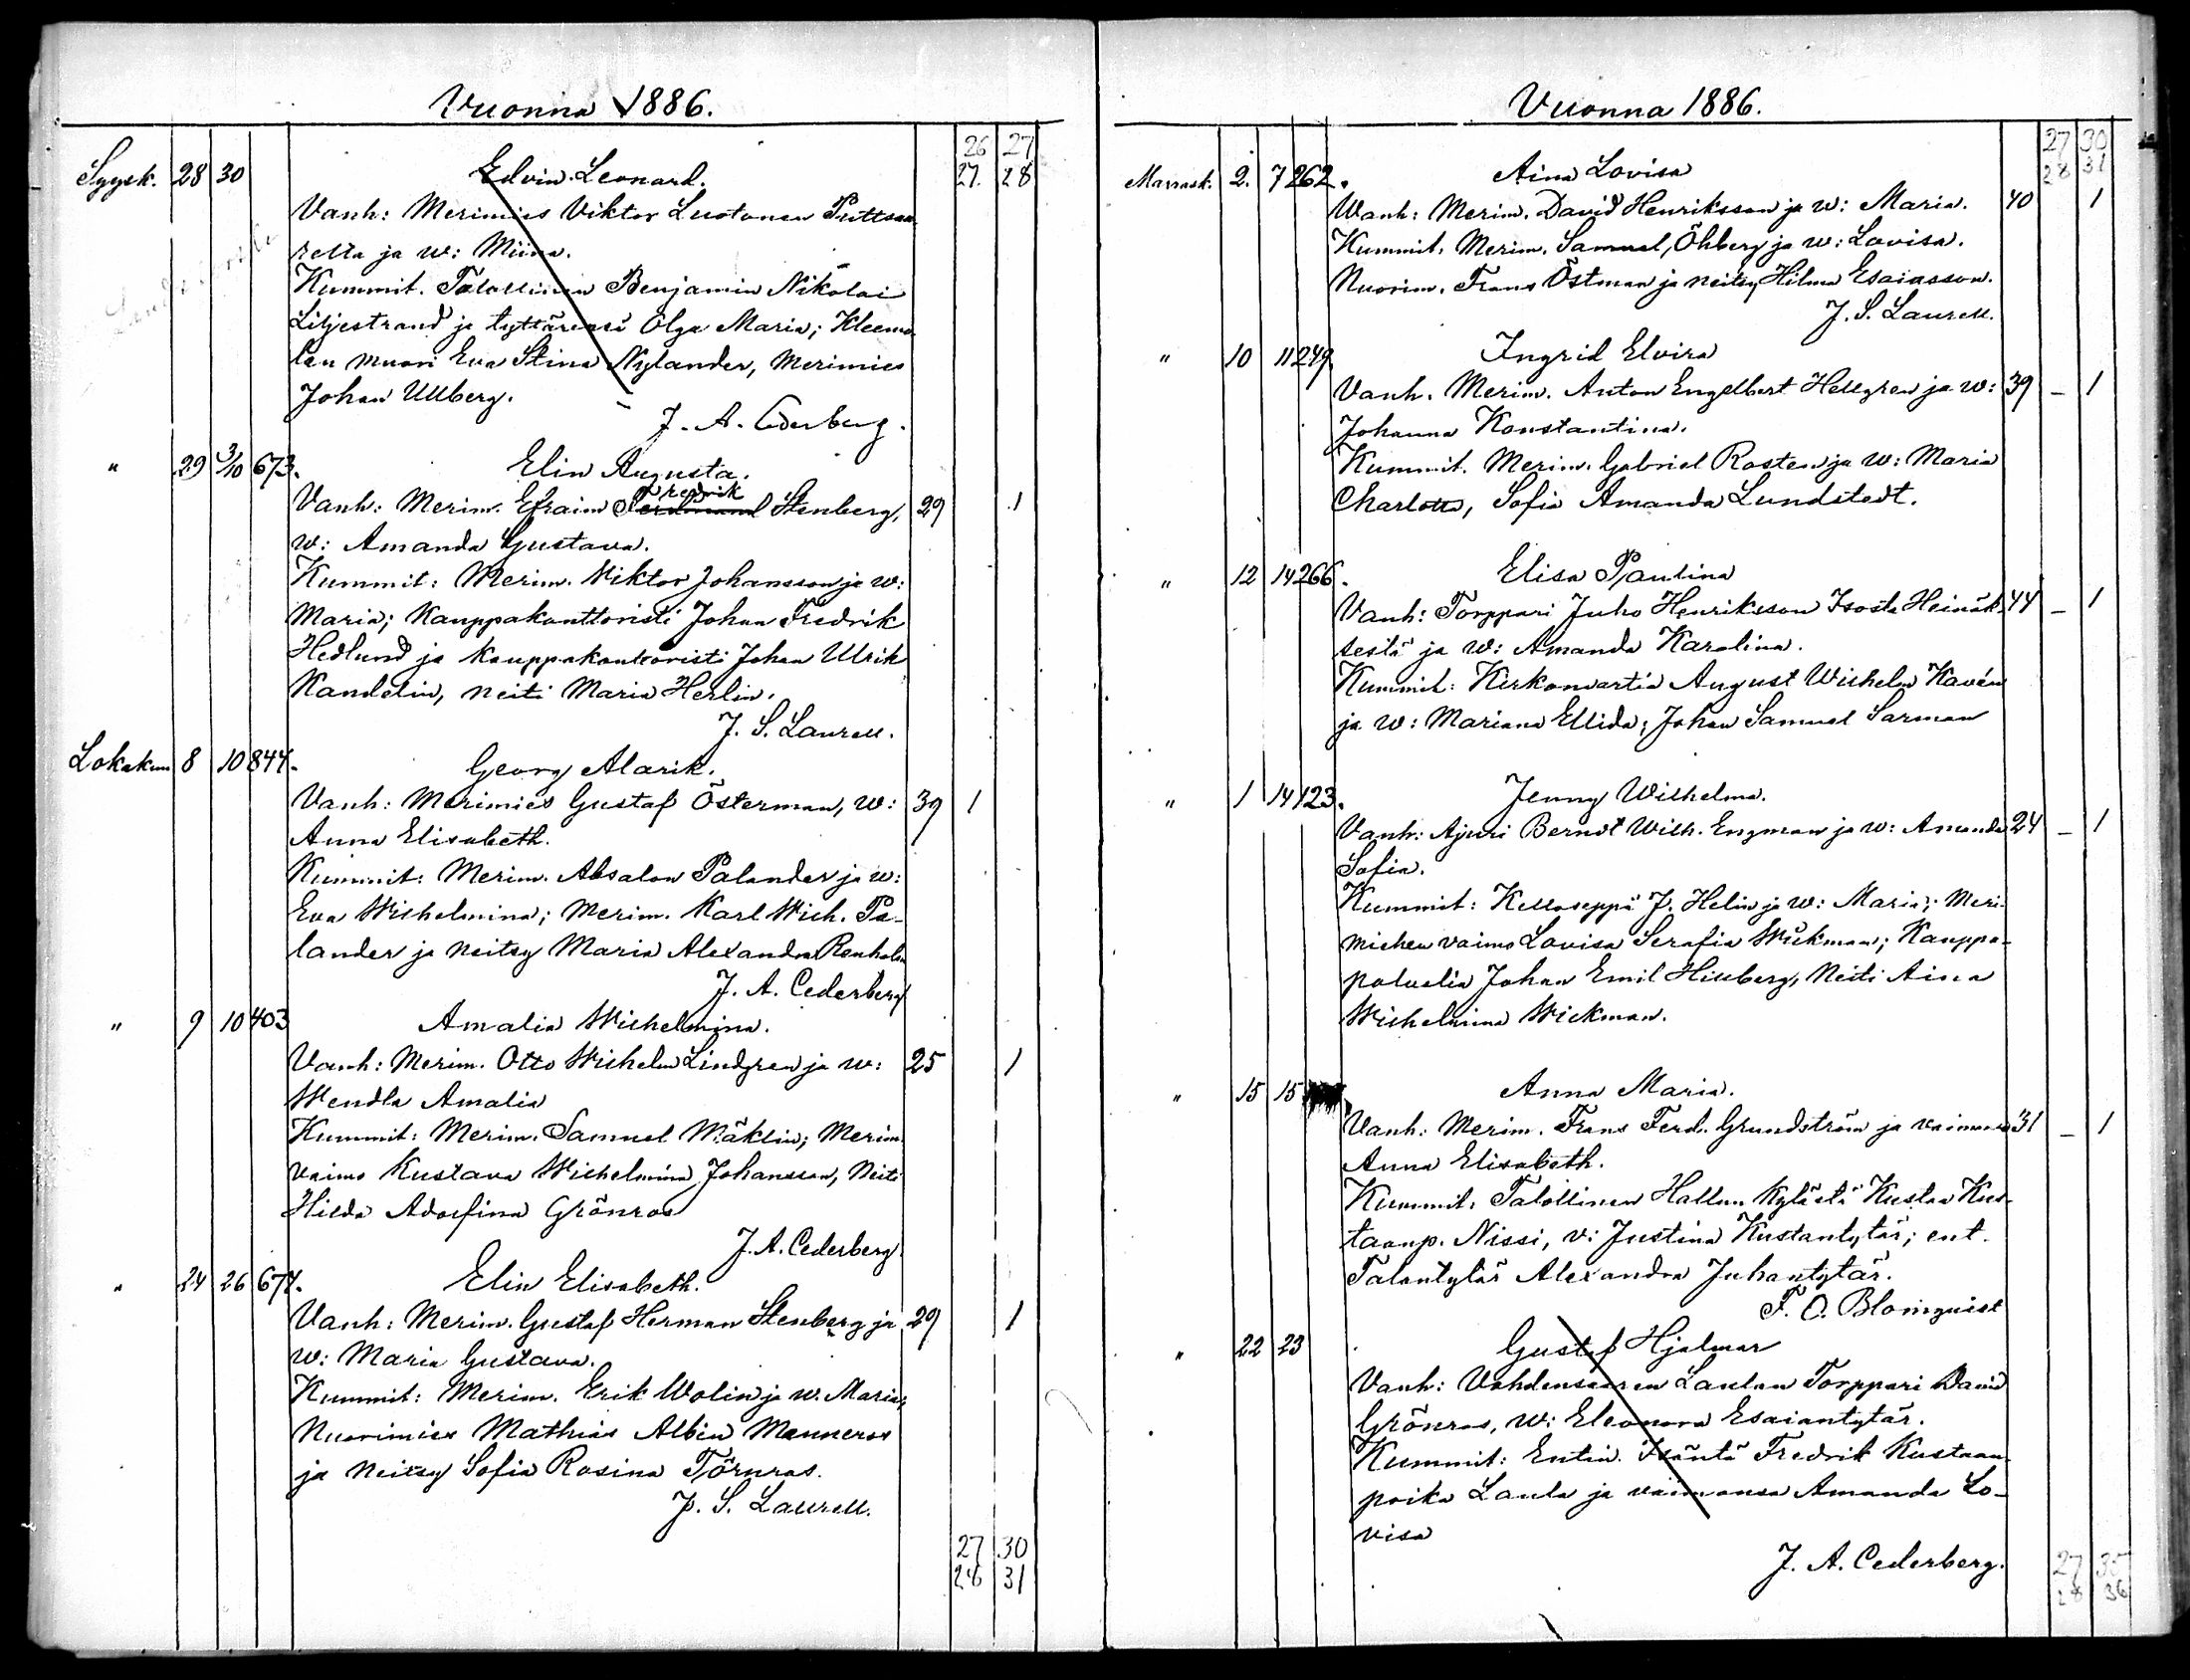 Vuonna 1886.
26 27
Syysk. 28 30 Edvin Leonard. 27. 28
Vanh: Merimies Viktor Luotonen Puttsaa-
relta ja w: Miina.
Kummit. Talollinen Benjamin Nikolai
Liljestrand ja tyttärensä Olga Maria; Kleemo-
lan muori Eva Stina Nylander, Merimies
Johan Ullberg.
J. A. Cederberg.
" 29 3/10 673. Elin Augusta.
Vanh: Merim. Efraim Ferdinand Fredrik Stenberg, 29 1
w: Amanda Gustava.
Kummit: Merim. Viktor Johansson ja w:
Maria; Kauppakonttoristi Johan Fredrik
Hedlund ja Kauppakontoristi Johan Ulrik
Kandelin, neiti Maria Herlin.
J. S. Laurell.
Lokakuu 8 10 844. Georg Alarik.
Vanh: Merimies Gustaf Österman, w: 39 1
Anna Elisabeth.
Kummit: Merim. Absalon Palander ja w:
Eva Wilhelmina; Merim. Karl Wilh. Pa-
lander ja neitsy Maria Alexandra Renholm
J. A. Cederberg
" 9 10 403 Amalia Wilhelmina.
Vanh: Merim. Otto Wilhelm Lindgren ja w: 25 1
Wendla Amalia
Kummit: Merim. Samuel Mäklin; Merim.
vaimo Kustava Wilhelmina Johansson, Neiti
Hilda Adolfina Grönroos
J. A. Cederberg.
" 24 26 674. Elin Elisabeth.
Vanh: Merim. Gustaf Herman Stenberg ja 29 1
w: Maria Gustava.
Kummit: Merim. Erik Wolin ja w. Maria,
Nuorimies Mathias Albin Manneros
ja Neitsy Sofia Rosina Törnros.
J. S. Laurell.
27 30
28 31
Vuonna 1886.
27 30
28 31
Marrask. 2. 7 262. Aina Lovisa
Wanh: Merim. David Henriksson ja w: Maria. 40 1
Kummit. Merim. Samuel Öhberg ja w: Lovisa.
Nuorim. Frans Östman ja neitsy Hilma Esaiasson.
J. S. Laurell.
" 10 11 249. Ingrid Elvira
Vanh. Merim. Anton Engelbert Hellgren ja w: 39 - 1
Johanna Konstantina.
Kummit. Merim. Gabriel Rosten ja w: Maria
Charlotta, Sofia Amanda Lundstedt.
" 12 14 266. Elisa Paulina
Vanh: Torppari Juho Henriksson Isosta Heinäk- 44 - 1
sestä ja w: Amanda Karolina.
Kummit: Kirkonvartia August Wilhelm Kavén
ja w: Mariana Ellida; Johan Samuel Sarman
" 1 14 123. Jenny Wilhelma.
Vanh: Ajuri Berndt Wilh. Engman ja w: Amanda 24 - 1
Sofia.
Kummit: Kelloseppä J. Helin ja w: Maria; Meri-
miehen vaimo Lovisa Serafia Wickman; Kauppa-
palvelia Johan Emil Hillberg, Neiti Aina
Wilhelmina Wickman.
" 15 15 Anna Maria.
Vanh: Merim. Frans Ferd. Grundström ja vaimonsa 31 - 1
Anna Elisabeth.
Kummit. Talollinen Hallun kylästä Kustaa Kus-
taanp. Nissi, v: Justina Kustantytär; ent.
Talontytär Alexandra Juhantytär.
F. O. Blomquist
" 22 23 Gustaf Hjalmar
Vanh: Vohdensaaren Laulun Torppari David
Grönros, w: Eleonora Esaiantytär.
Kummit: Entin. Isäntä Fredrik Kustaan-
poika Laula ja vaimonsa Amanda Lo-
visa
J. A. Cederberg.
27 35
28 36